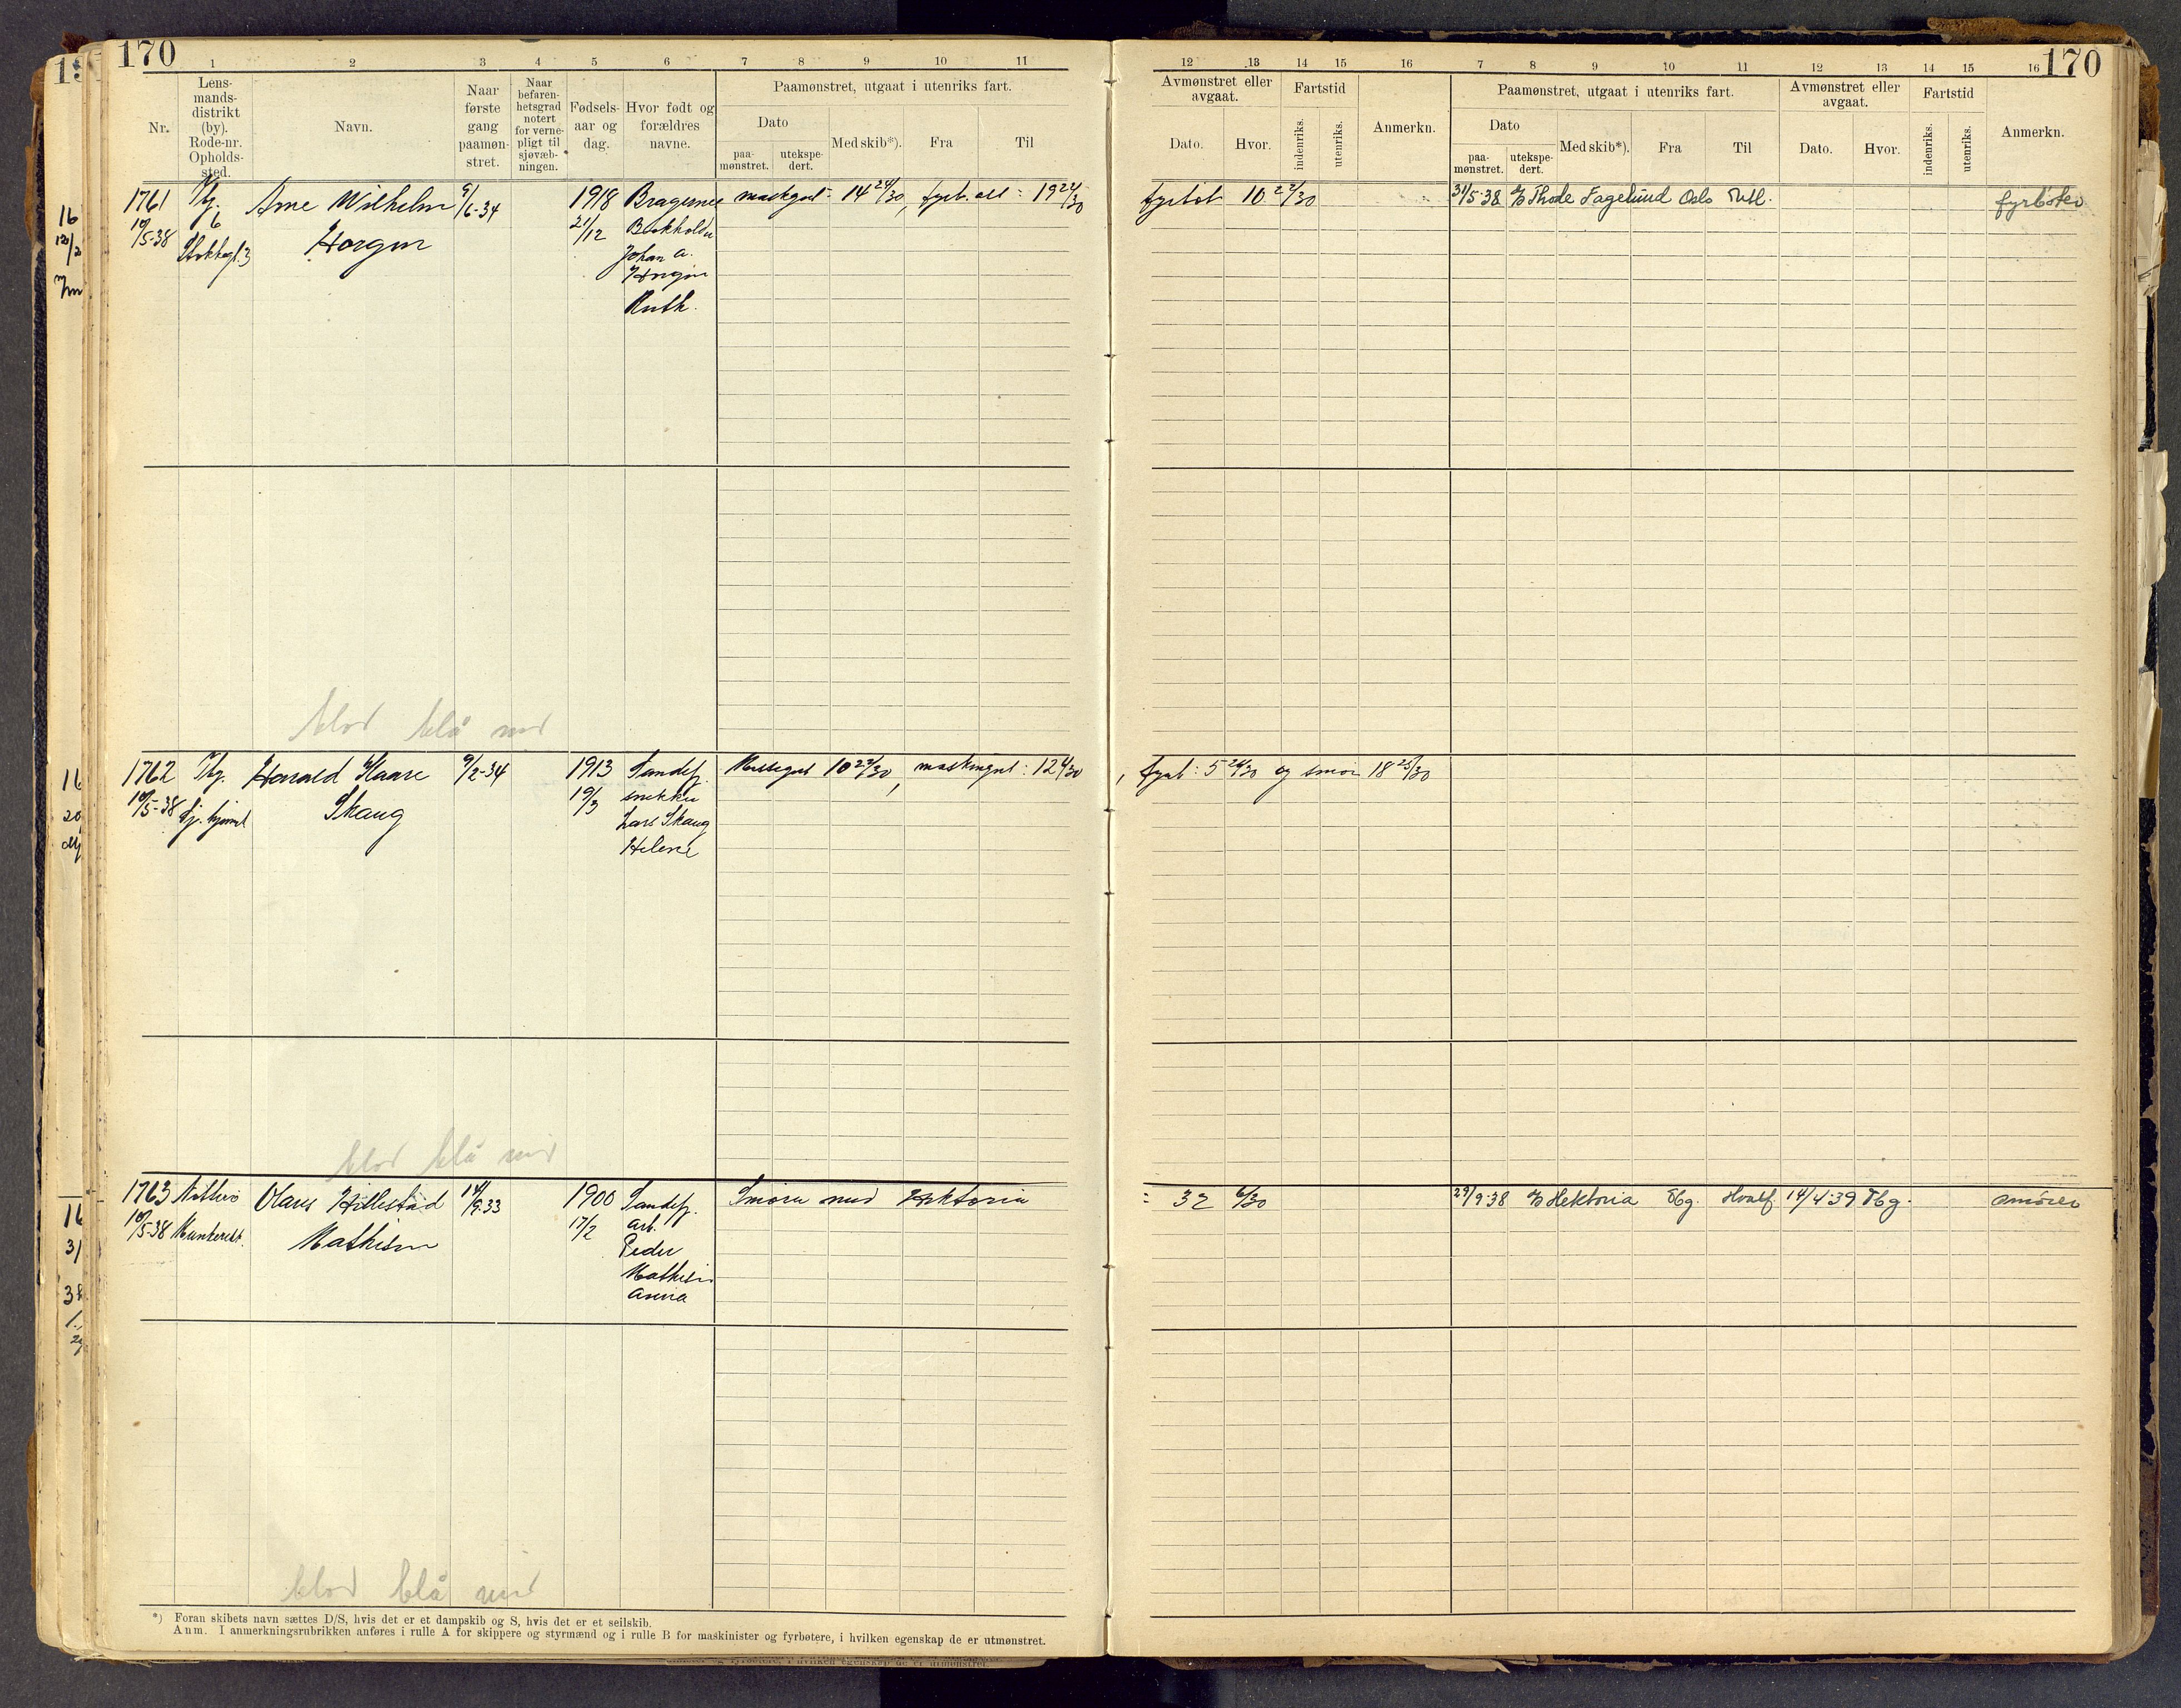 170
1 2 3 4 5 6 7 8 9 10 11
Nr.
Lens-
mands-
distrikt
(by).
Rode-nr.
Opholds-
sted.
Navn.
Naar
første
gang
paamøn-
stret.
Naar
befaren-
hetsgrad
notert
for verne-
pligt til
sjøvæb-
ningen.
Fødsels-
aar og
dag.
Hvor født og
forældres
navne.
Paamønstret, utgaat i utenriks fart.
Dato
paa-
mønstret.
utekspe-
dert.
Med skib*).
Fra
Til
1761 Tbg. Arne Wilhelm 9/6-34 1918 Bragernes maskgut: 14 24/30, fyrb. ass: 19 24/30
10/5-38 6 Horgen 21/12 Blokkholder
3 Johan A.
Horgen
Ruth.
blod blå
1762 Tbg. Harald Kaare 9/2-34 1913 Sandefj. Messegut 10 23/30, maskingut: 12 4/30
10/5-38 Sj. hjemmet Skaug 19/3 snekker
Lars Skaug
Helene
blod blå
1763 Nøtterø Olaus Hillestad 14/9-33 1900 Sandefj. Smører med Hektoria
10/5-38 Mathisen 17/2 arb.
Peder
Mathisen
Anna
blod blå
*) Foran skibets navn sættes D/S, hvis det er et dampskib og S, hvis det er et seilskib.
Anm. I anmerkningsrubrikken anføres i rulle A for skippere og styrmænd og i rulle B for maskinister og fyrbøtere, i hvilken egenskap de er utmønstret.
170
12 13 14 15 16 7 8 9 10 11 12 13 14 15 16
Avmønstret eller
avgaat.
Dato.
Hvor.
Fartstid
indenriks.
utenriks.
Anmerkn.
Paamønstret, utgaat i utenriks fart.
Dato
paa-
mønstret.
utekspe-
dert.
Med skib*).
Fra
Til
Avmønstret eller
avgaat.
Dato.
Hvor.
Fartstid
indenriks.
utenriks.
Anmerkn.
fyrbøt 10 22/30 31/5-38 Thode Fagelund Oslo Utl. fyrbøter
fyrb: 5 24/30 og smør 18 25/30
= 32 6/30 29/9-38 Hektoria Tbg. Hvalf. 14/4-39 Tbg. smører